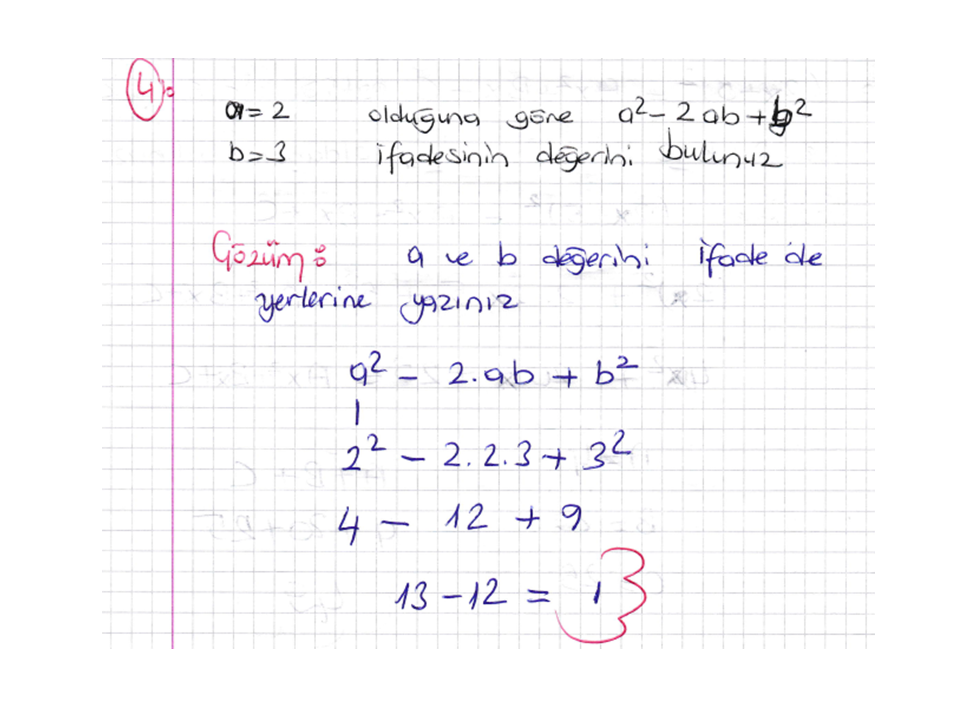 4:
a=2 olduğuna göre a²-2ab+b²
b=3 ifadesinin değerini bulunuz
Çözüm: a ve b değerini ifade de
yerlerine yazınız
a² - 2.ab + b²
2² - 2.2.3 + 3²
4 - 12 + 9
13 - 12 = 1